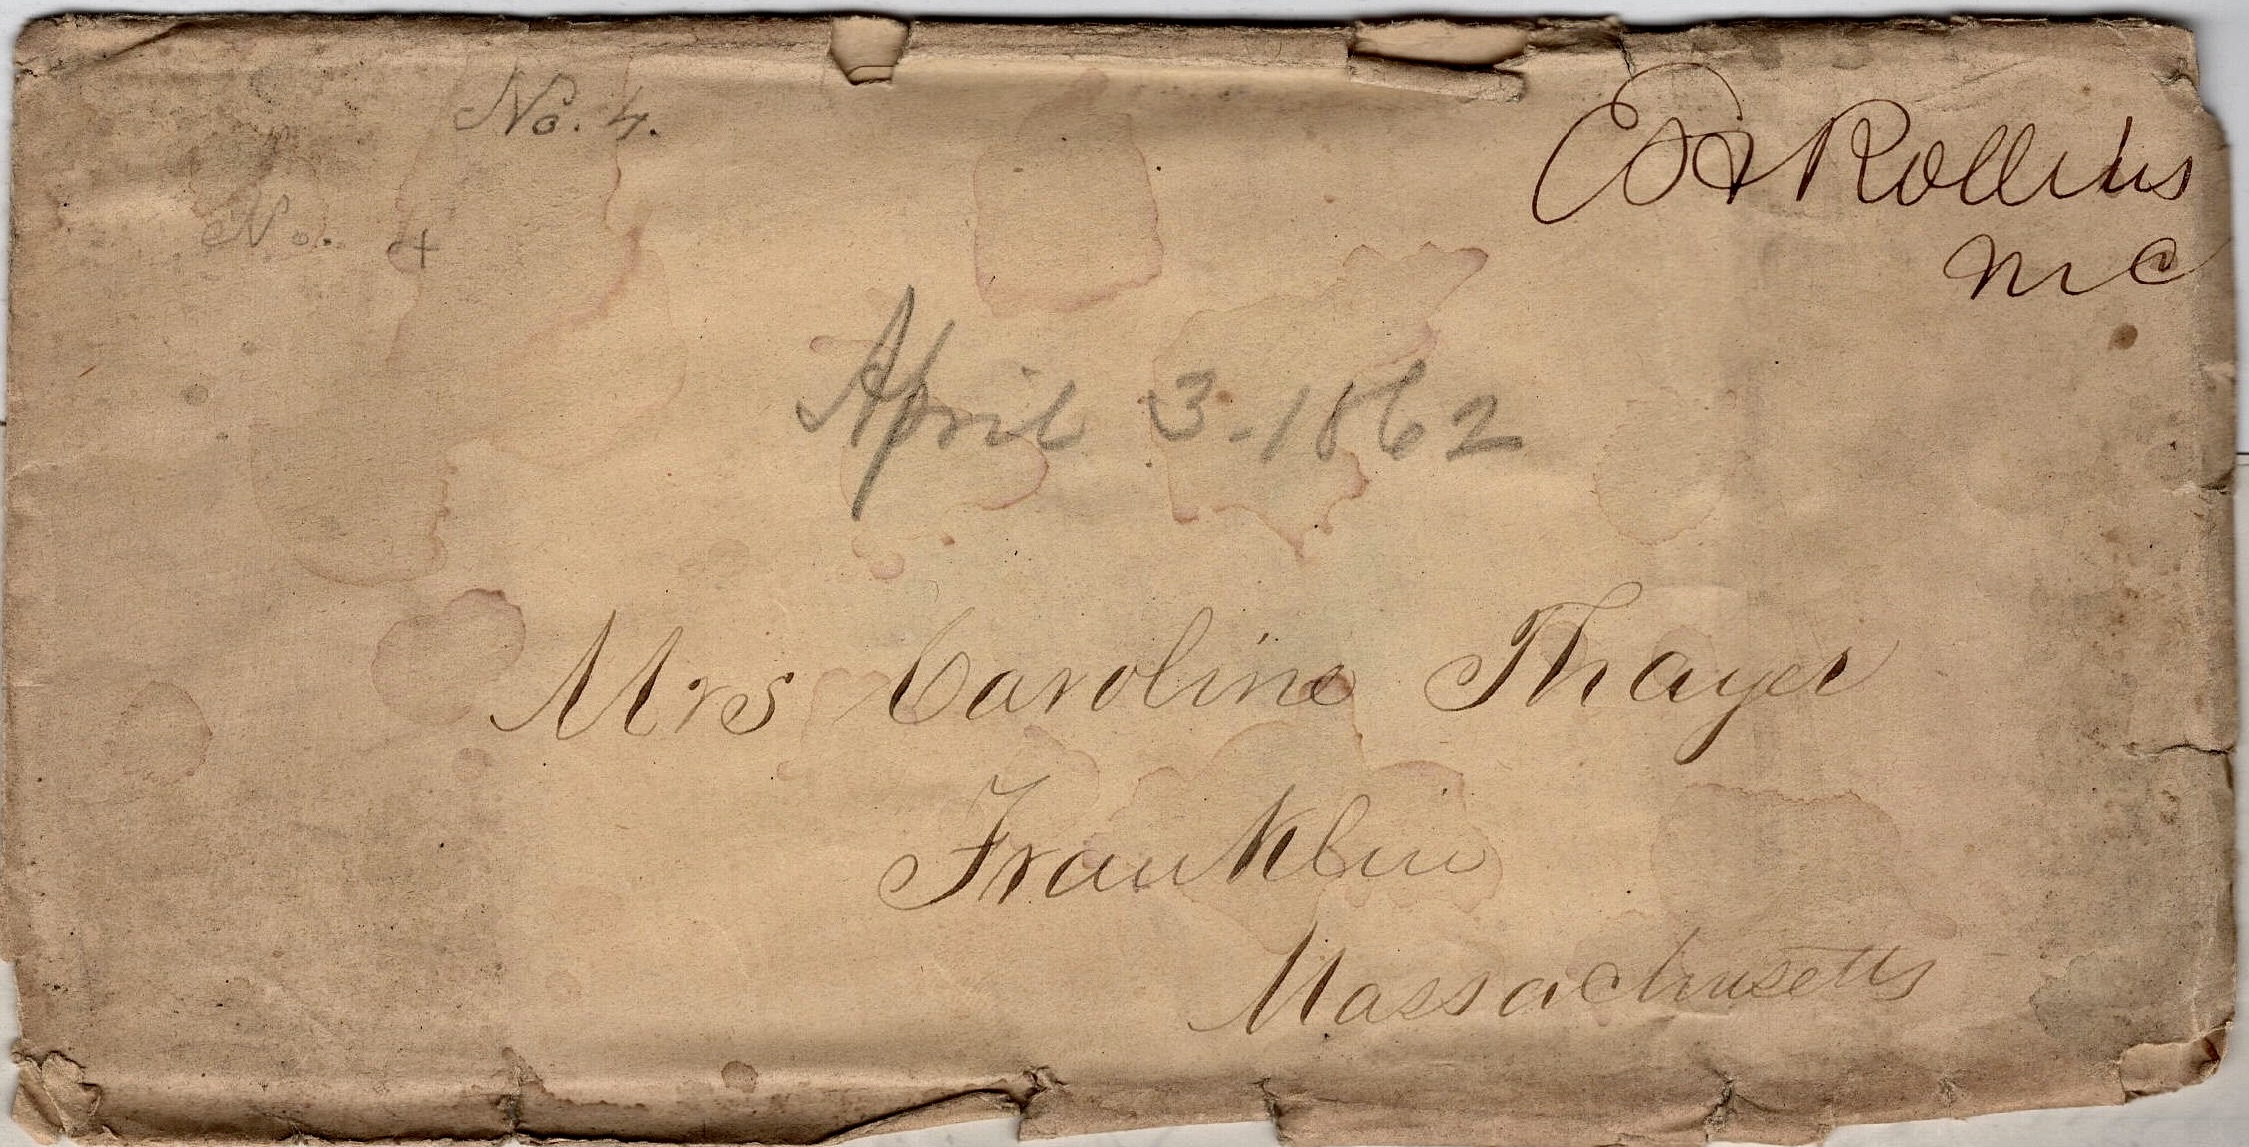 No. 4.
E H Rollins
M C
No. 4
April 3-1862
Mrs Caroline Thayer
Franklin
Massachusetts